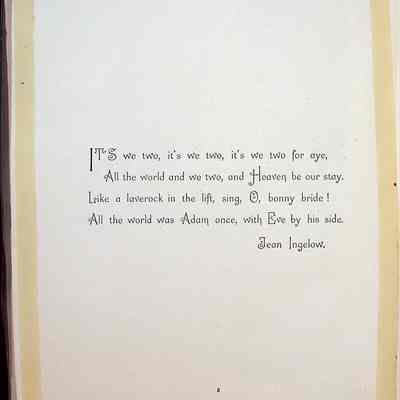 IT'S we two, it's we two, it's we two for aye,
All the world and we two, and Heaven be our stay.
Like a laverock in the lift, sing, O, bonny bride!
All the world was Adam once, with Eve by his side.
Jean Ingelow.